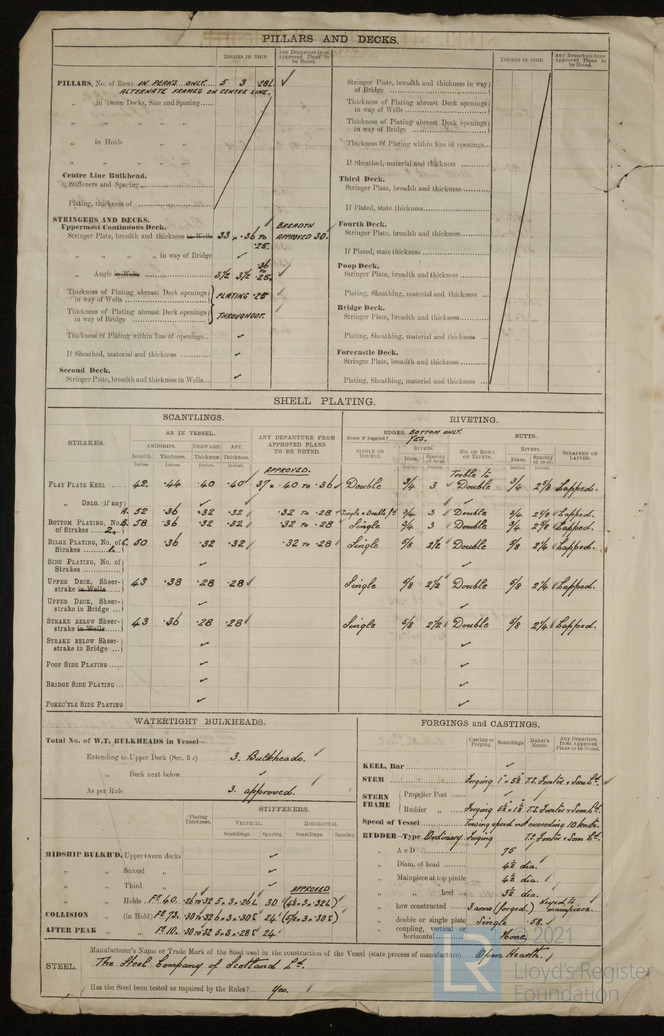 PILLARS AND DECKS.
INCHES IN SHIP.
Any Departure from Approved Plans to be Noted.
PILLARS, No. of Rows IN PEAKS ONLY. 5 3 .28L ✓
ALTERNATE FRAMES ON CENTRE LINE.
„ in 'tween Decks, Size and Spacing
„ „ „ „
„ in Holds „ „
„ „ „ „
Centre Line Bulkhead.
Stiffeners and Spacing
Plating, thickness of
STRINGERS AND DECKS.
Uppermost Continuous Deck.
Stringer Plate, breadth and thickness in Wells 33 x .36 TO .25. BREADTH APPROVED 30.
„ „ „ „ in way of Bridge ✓
„ Angle in Wells 3½ 3½ .36 TO .25. ✓
Thickness of Plating abreast Deck openings in way of Wells
PLATING .25 ✓
Thickness of Plating abreast Deck openings in way of Bridge
THROUGHOUT.
Thickness of Plating within line of openings ✓
If Sheathed, material and thickness ✓
Second Deck.
Stringer Plate, breadth and thickness in Wells ✓
INCHES IN SHIP.
Any Departure from Approved Plans to be Noted.
Stringer Plate, breadth and thickness in way of Bridge
Thickness of Plating abreast Deck openings in way of Wells
Thickness of Plating abreast Deck openings in way of Bridge
Thickness of Plating within line of openings
If Sheathed, material and thickness
Third Deck.
Stringer Plate, breadth and thickness
If Plated, state thickness
Fourth Deck.
Stringer Plate, breadth and thickness
If Plated, state thickness
Poop Deck.
Stringer Plate, breadth and thickness
Plating, Sheathing, material and thickness
Bridge Deck.
Stringer Plate, breadth and thickness
Plating, Sheathing, material and thickness
Forecastle Deck.
Stringer Plate, breadth and thickness
Plating, Sheathing, material and thickness
SHELL PLATING.
SCANTLINGS.
RIVETING.
STRAKES.
AS IN VESSEL.
AMIDSHIPS. FORWARD. AFT.
Breadth. Thickness. Thickness. Thickness.
Inches. Inches. Inches. Inches.
ANY DEPARTURE FROM APPROVED PLANS TO BE NOTED.
EDGES. BOTTOM ONLY.
State if joggled? YES.
SINGLE OR DOUBLE.
RIVETS.
Diam. Spacing cr. to cr.
Inches. Inches.
BUTTS.
NO. OF ROWS OF RIVETS.
RIVETS.
Diam. Spacing cr. to cr.
Inches. Inches.
STRAPPED OR LAPPED.
FLAT PLATE KEEL 42. .44 .40 .40 APPROVED. 37 x .40 TO .36 Double ¾ 3 Treble to Double ¾ 2⅝ Lapped.
„ DBLG. (if any) ✓
A. 52 .36 .32 .32 .32 TO .28 Single & Double ¾ 3 Double ¾ 2⅝ Lapped.
BOTTOM PLATING, No. of Strakes 2. B. 58 .36 .32 .32 .32 TO .28 Single ¾ 3 Double ¾ 2⅝ Lapped.
BILGE PLATING, No. of Strakes 1. C. 50 .36 .32 .32 .32 TO .28 Single ⅝ 2½ Double ⅝ 2¼ Lapped.
SIDE PLATING, No. of Strakes ✓
UPPER DECK, Sheerstrake in Wells 43 .38 .28 .28 Single ⅝ 2½ Double ⅝ 2¼ Lapped.
UPPER DECK, Sheerstrake in Bridge ✓
STRAKE BELOW Sheerstrake in Wells 43 .36 .28 .28 Single ⅝ 2½ Double ⅝ 2¼ Lapped.
STRAKE BELOW Sheerstrake in Bridge ✓
POOP SIDE PLATING ✓
BRIDGE SIDE PLATING ✓
FOREC'TLE SIDE PLATING ✓
WATERTIGHT BULKHEADS.
Total No. of W.T. BULKHEADS in Vessel—
Extending to Upper Deck (Sec. 3 c) 3. Bulkheads.
„ Deck next below ✓
As per Rule 3. approved.
STIFFENERS.
Plating Thickness.
VERTICAL. HORIZONTAL.
Scantlings. Spacing. Scantlings. Spacing.
MIDSHIP BULKH'D, Upper tween decks ✓
„ „ Second „ ✓
„ „ Third „ ✓ APPROVED
„ „ Holds Fr. 40. 5 x 3 x 26 L 30
COLLISION „ (in Hold) Fr. 73. 24
AFTER PEAK „ „ Fr. 10. 24
FORGINGS and CASTINGS.
Casting or Forging. Scantlings. Maker's Name. Any Departure from Approved Plans to be Noted.
KEEL, Bar ✓
STEM Forging
STERN FRAME
Propeller Post ✓
Rudder „ Forging
Speed of Vessel Towing speed not exceeding 10 knots.
RUDDER—Type Ordinary Forging
„ A x D 75
„ Diam. of head 4½ dia.
„ Mainpiece at top pintle 4½ dia.
„ „ heel 3½ dia.
„ how constructed 3 arms (forged.) Keyed to mainpiece.
„ double or single plate Single .58.
„ coupling, vertical or horizontal None.
STEEL.
Manufacturer's Name or Trade Mark of the Steel used in the construction of the Vessel (state process of manufacture) Open Hearth.
The Steel Company of Scotland Ltd.
Has the Steel been tested as required by the Rules? Yes.
© 2021
LR
Lloyd's Register
Foundation